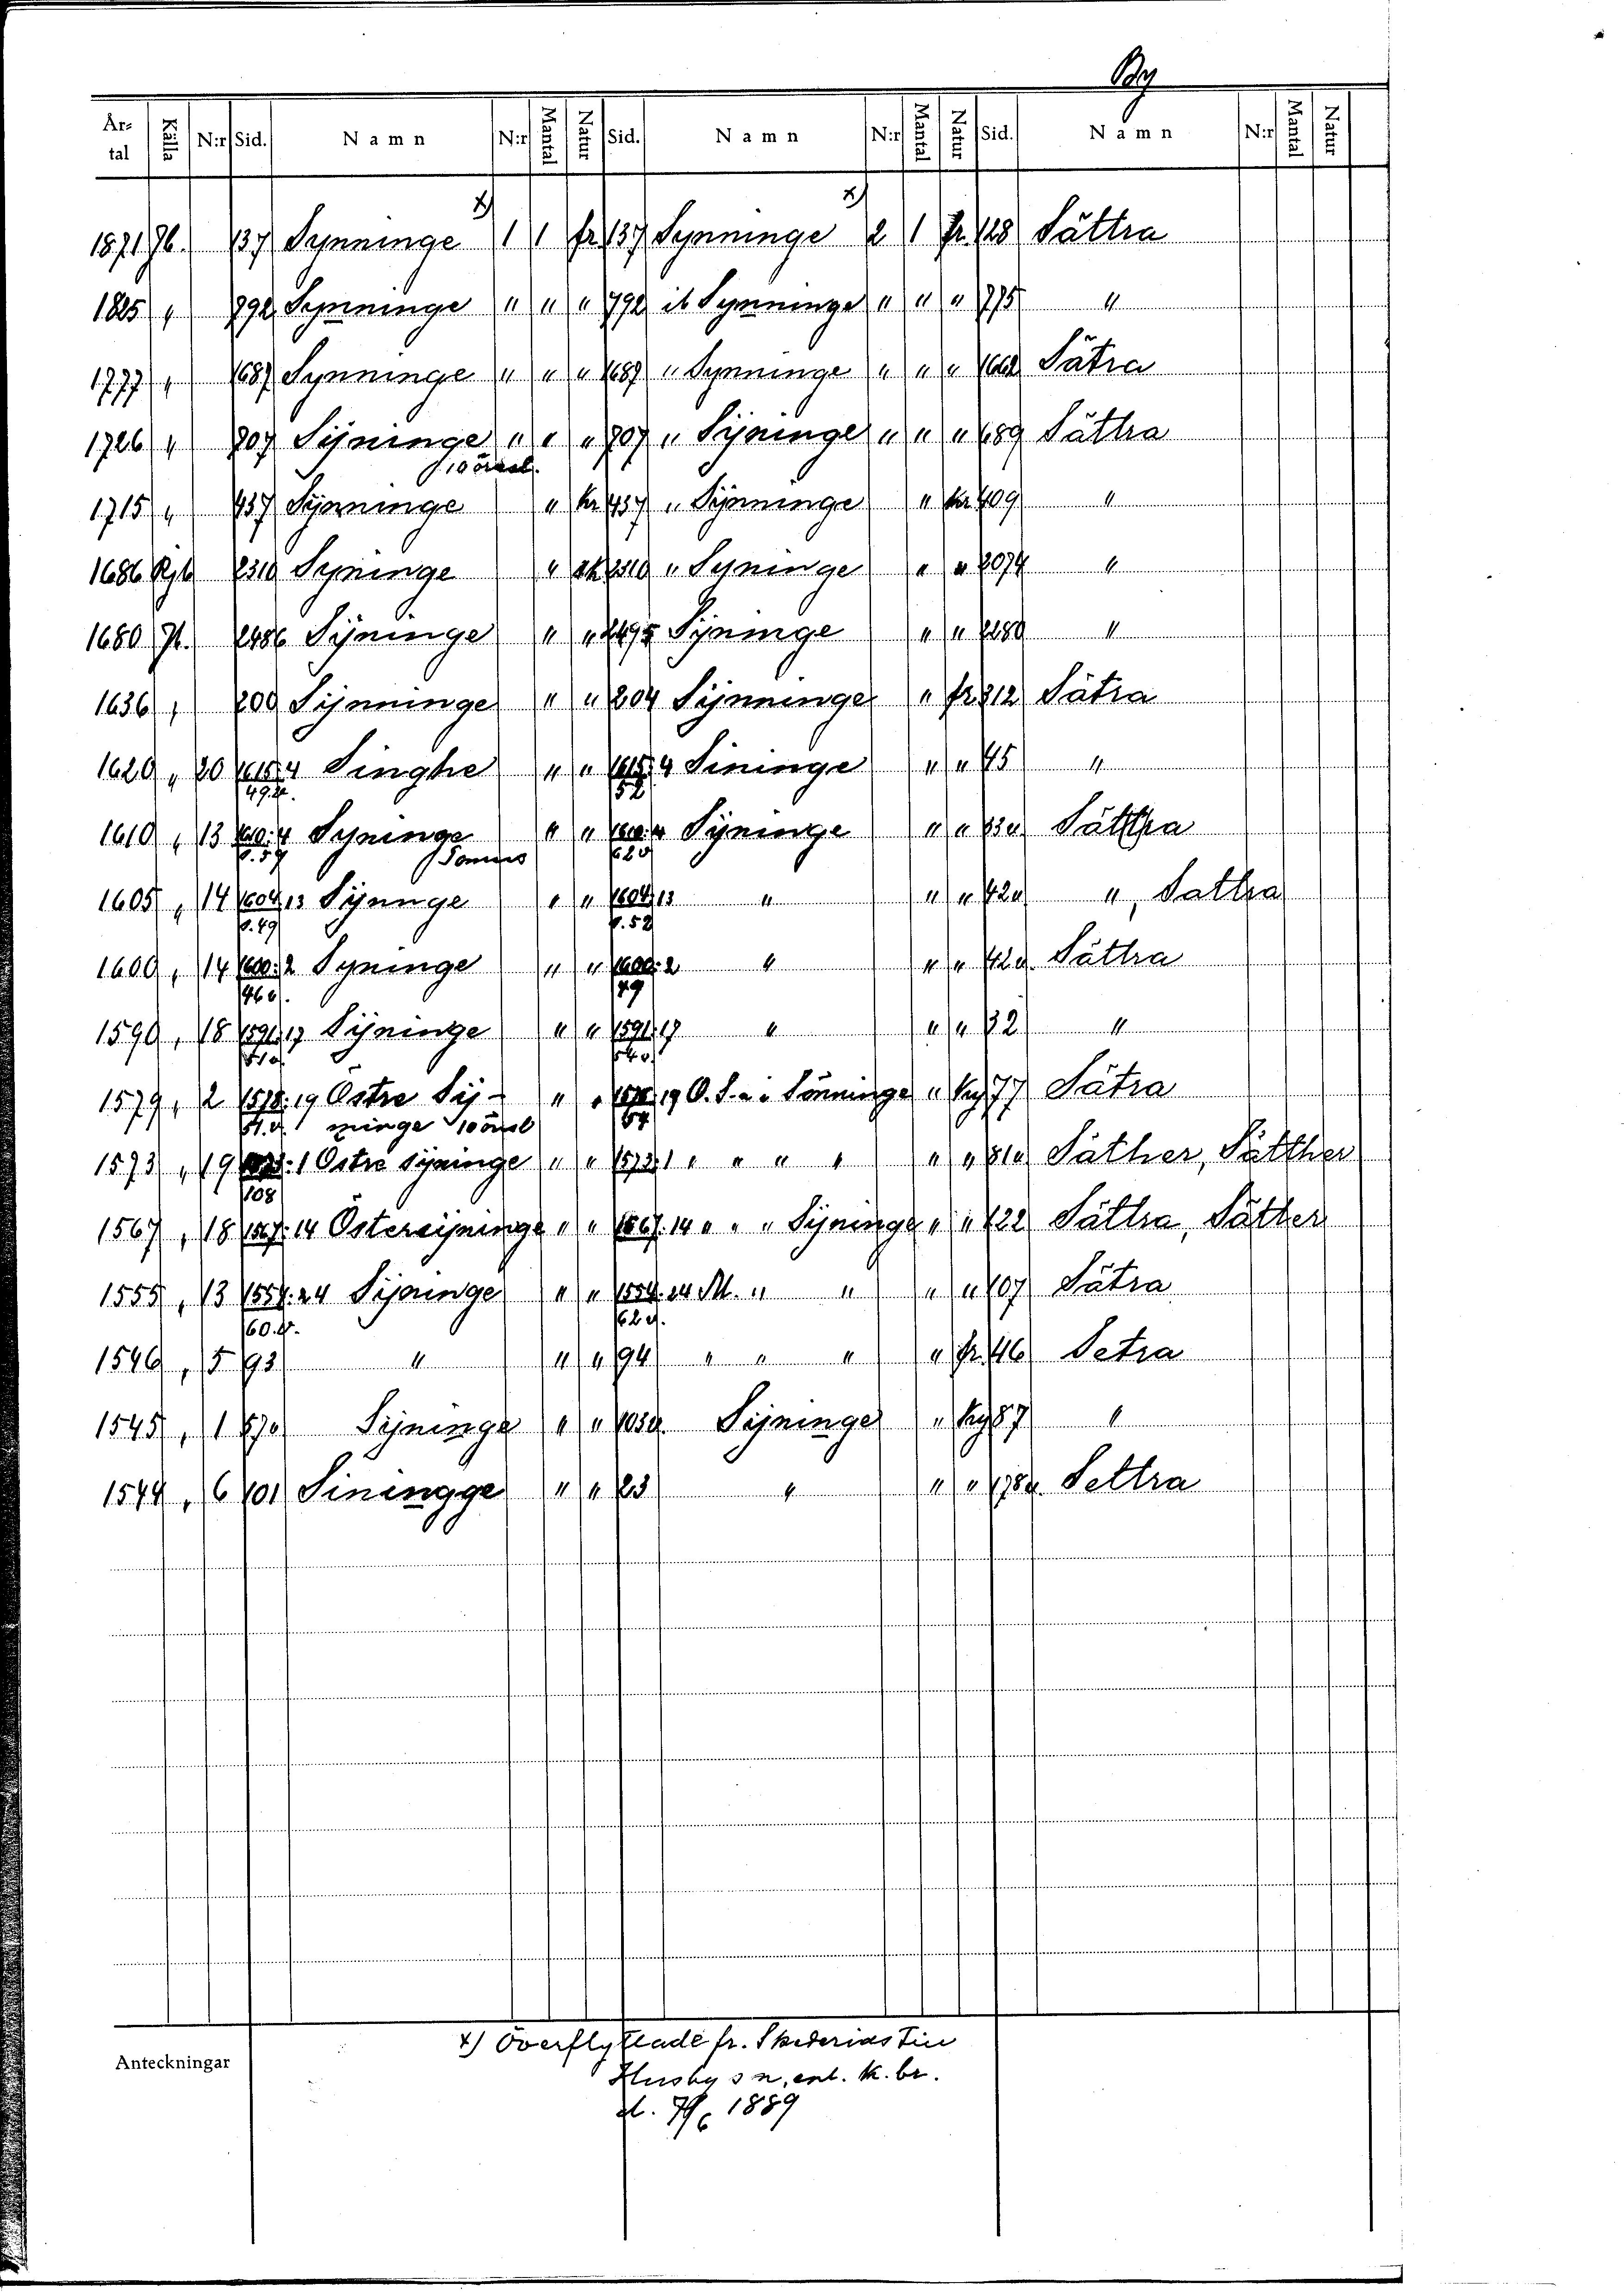 By
Årtal Källa N:r Sid. Namn N:r Mantal Natur Sid. Namn N:r Mantal Natur Sid. Namn N:r Mantal Natur
x) x)
1871 Jb. 137 Synninge 1 1 fr 137 Synninge 2 1 fr. 128 Sättra
1825 " 792 Synninge " " " 792 ib Synninge " " " 775 "
1777 " 687 Synninge " " " 687 " Synninge " " " 662 Sätra
1726 " 707 Sijninge " " " 707 " Sijninge " " " 689 Sättra
10 öresl.
1715 " 437 Sijnninge " kr 437 " Sijnninge " kr 409 "
1686 Rjb 2310 Syninge " sk 2310 " Syninge " " 2074 "
1680 Jb. 2486 Sijninge " " 2495 Sijninge " " 2280 "
1636 " 200 Sijnninge " " 204 Sijnninge " fr 212 Sätra
1620 " 20 1615:4 Singhe " " 1615:4 Sininge " " 45 "
49 v. 52
1610 " 13 1610:4 Syninge " " 1610:4 Sijninge " " 33v Sättra
p. 59 Somus 62v
1605 " 14 1604:13 Sijnnge " " 1604:13 " " " 42v ", Sattra
p. 49 p. 52
1600 " 14 1600:2 Syninge " " 1600:2 " " " 42v. Sättra
46v. 49
1590 " 18 1591:17 Sijninge " " 1591:17 " " " 32 "
1579 " 2 1578:19 Östre Sij- " " 1578:19 Ö. S. " " Sönninge " kry 77 Sätra
ninge 10 örsl 54
1573 " 19 1573:1 Östre sijninge " " 1573:1 " " " " " " 81v Säther, Sätther
108
1567 " 18 1567:14 Östersijninge " " 1567:14 " " " Sijninge " " 122 Sättra, Sätter
1555 " 13 1554:24 Sijninge " " 1554:24 M. " " " " 107 Sätra
60.v. 62v.
1546 " 5 93 " " " 94 " " " " fr. 46 Setra
1545 " 1 57v Sijninge " " 103v. Sijninge " kry 87 "
1544 " 6 101 Siningge " " 23 " " " 178v. Settra
Anteckningar
x) Överflyttade fr. Skederids t in
Husby sn, enl. k. br.
d. 7/6 1889